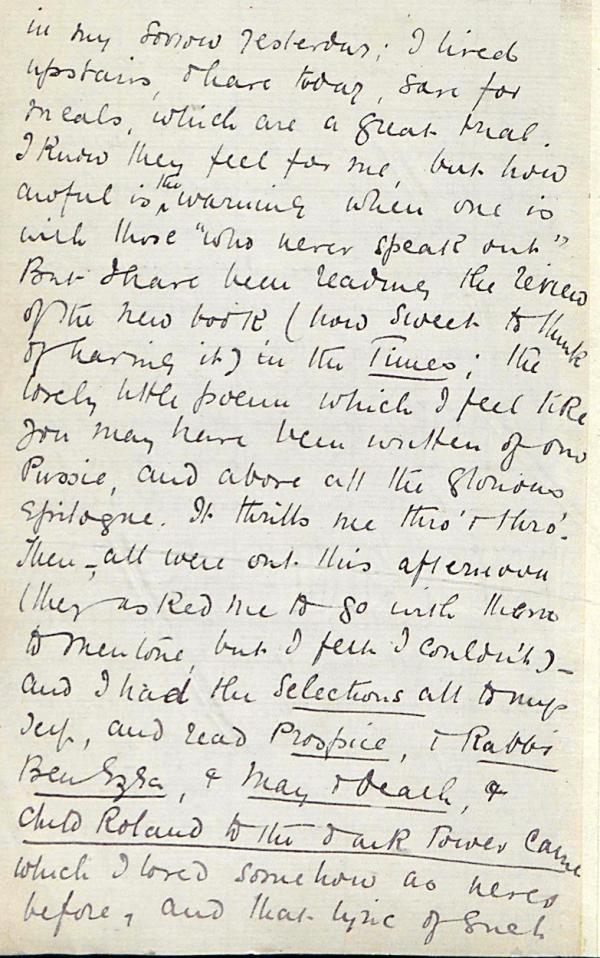 in my sorrow yesterday; I lived
upstairs, & have today, save for
meals, which are a great trial.
I know they feel for me, but how
awful is the warning when one is
with those "who never speak out"
But I have been reading the review
of the new book (how sweet to think
of having it) in the Times; the
lovely little poem which I feel like
you may have been written of our
Pussie, and above all the glorious
Epilogue. It thrills me thro' & thro'.
Then, all were out this afternoon
(they asked me to go with them
to Mentone, but I felt I couldn't) -
and I had the Selections all to my
self, and read Prospice, & Rabbi
Ben Ezra, & May & Death, &
Child Roland to the dark Tower Came
which I loved somehow as never
before, and that lyric of such